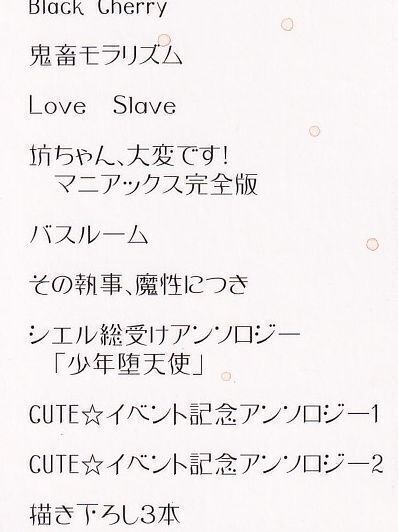 Black Cherry
鬼畜モラリズム
Love Slave
坊ちゃん、大変です!
マニアックス完全版
バスルーム
その執事、魔性につき
シエル総受けアンソロジー
「少年堕天使」
CUTE☆イベント記念アンソロジー1
CUTE☆イベント記念アンソロジー2
描き下ろし3本